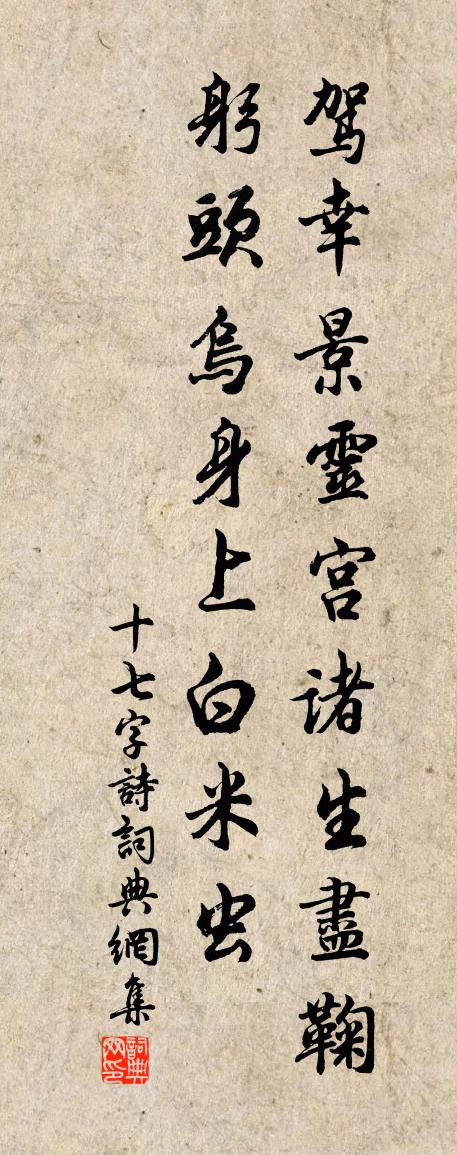 駕幸景靈宮諸生盡鞠
躬頭烏身上白米虫
十七字詩詞典網集
詞典网印